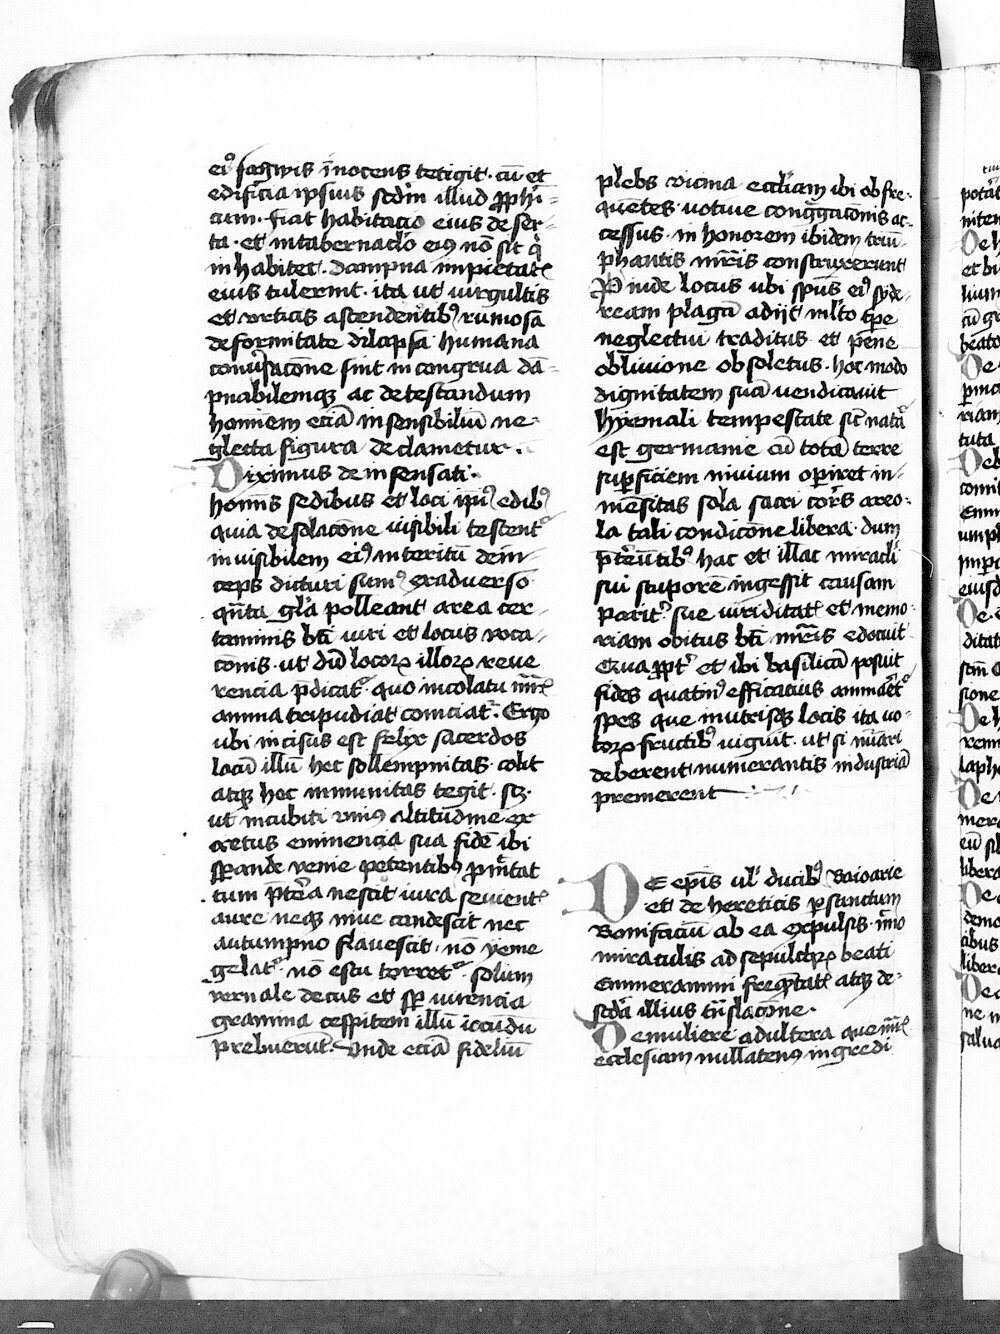 eiꝰ sagwis īnocens tetigit. cū et
edificia ipsius scdm illud ꝓphi-
cum. fiat habitatio eius deser-
ta. et in tabernaclo eiꝰ nō sit q̄
in habitet. dampna impietatꝭ
eius tulerint. ita ut uirgultis
et vrticis ascendentibꝰ rumosa
deformitate dilapsa humana
conūsacōne sint incongrua dā-
pnabilemqꝫ ac detestandum
hominem eciā insensibiliū ne-
glecta figura declametur.
Diximus de insensati
homīs sedibus et loci ipiꝰ edibꝰ
quia desolacōne uisibili testentᷣ
inuisibilem eiꝰ interitū dein-
ceps dicturi sumꝰ exaduerso
quāta gl̄a polleant area cer-
taminis bt̄i uiri et locus voca-
cōnis. ut dū locoꝝ illoꝝ reue
rencia p̄dicatᷣ quo incolatu
anima tripudiat conīciatᷣ. Ergo
ubi incisus est felix sacerdos
locū illū hec sollempnitas colit
atqꝫ hec inmunitas tegit. scꝫ
ut incubiti vniꝰ altitudine ex
cretus eminencia sua fidē ibi
sꝑande venie petentibꝰ pmittat
tum p̄terea nescit iura seuientꝭ
aure neqꝫ niue candescit nec
autumpno flauescit. nō yeme
gelatᷣ. nō estu torretᷣ. solum
vernale decus et sꝑ uirencia
gramina cespitem illū iocūdū
prebuerūt. Unde eciā fideliū
plebs vicina eccliam ibi ob fre-
quētes uotiue congregacionis ac-
cessus in honorem ibidem trium-
phantis mr̄is construxerunt
Proinde locus ubi spūs eiꝰ syde-
ream plagā adijt mlto tꝑe
neglectui traditus et pene
obliuione obsoletus. hoc modo
dignitatem suā uendicauit
hyemali tempestate sic nata
est germanie cū totā terre
suꝑficiem niuium oꝑiret in-
mēsitas sola sacri corꝑis areo-
la tali condicōne libera. dum
p̄tereūtibꝰ hac et illac miracli
sui stuporē ingessit causam
Paritᷣ sue uiriditatꝭ et memo-
riam obitus bt̄i mr̄is edocuit
Quaꝓptᷣ et ibi basilicā posuit
fides quatinꝰ efficatius animaretᷣ
spes que in utrisqꝫ locis ita uo-
toꝝ fructibꝰ uiguit. ut si nūari
deberent numerantis industriā
premerent
De epis ul ducibꝰ Baioarie
et de hereticis ꝑ sanctum
Bonifaciū ab ea expulsis. īmo
miraculis ad sepulchꝝ beati
Emmerammi freqn̄tatꝭ atqꝫ de
scda illius trāslacōne.
De muliere adultera que
ecclesiam nullatenꝰ ingredi